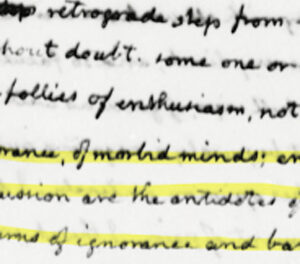 retrograde steps from
hout doubt. some one or
follies of enthusiasm, not
orance, of morbid minds; en
cussion are the antidotes of
rms of ignorance and ba